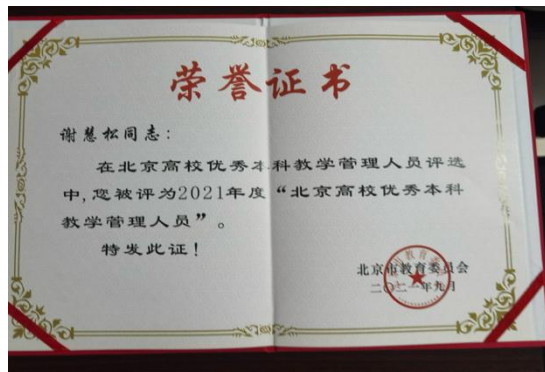 荣誉证书
谢慧松同志：
在北京高校优秀本科教学管理人员评选
中,您被评为2021年度“北京高校优秀本科
教学管理人员”。
特发此证！
北京市教育委员会
二〇二一年九月